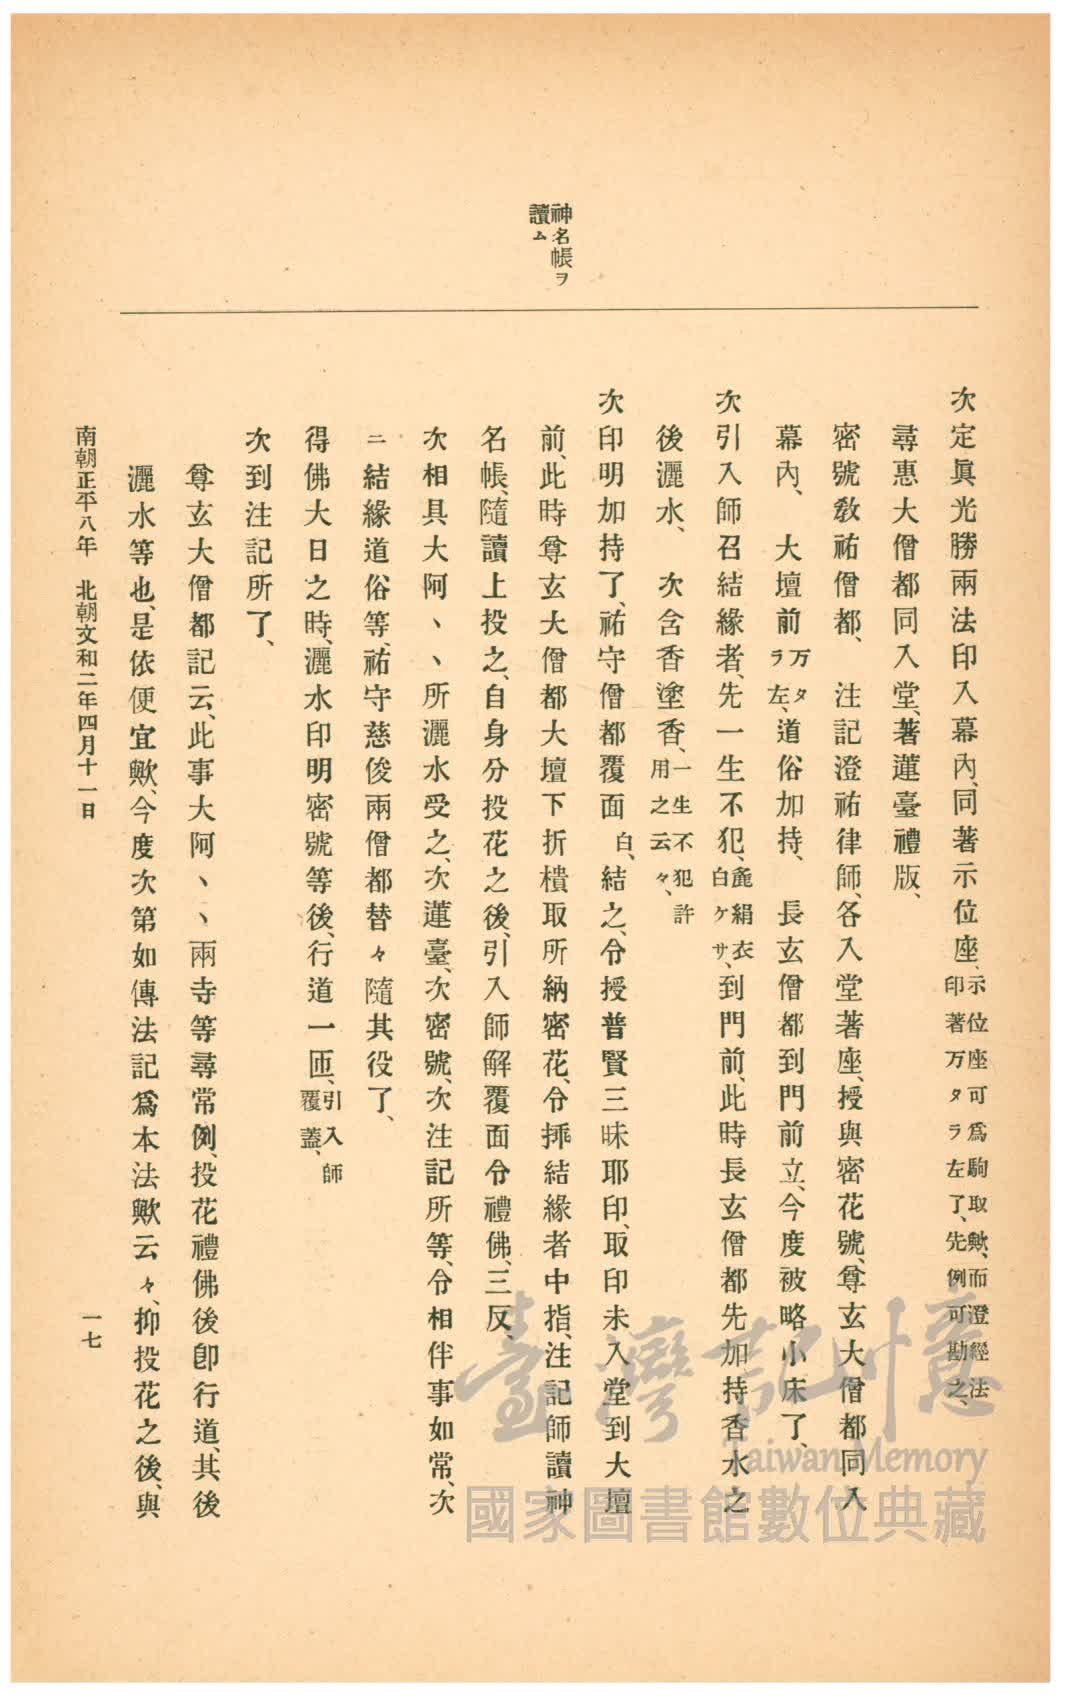 神名帳ヲ
讀ム
次定眞光勝兩法印入幕內、同著示位座、示位座可爲駒取歟、而澄經法印著万タラ左了、先例可勘之、
尋惠大僧都同入堂、著蓮臺禮版、
密號敎祐僧都、　注記澄祐律師、各入堂著座、授與密花號、尊玄大僧都同入
幕內、　大壇前万タラ左、道俗加持、　長玄僧都到門前立、今度被略小床了、
次引入師召結緣者、先一生不犯、麁絹衣白ケサ、到門前、此時長玄僧都先加持香水之
後灑水、　次含香塗香、一生不犯許用之云々、
次印明加持了、祐守僧都覆面白、結之、令授普賢三昧耶印、取印未入堂到大壇
前、此時尊玄大僧都大壇下折樻取所納密花、令挿結緣者中指、注記師讀神
名帳、隨讀上投之、自身分投花之後、引入師解覆面令禮佛、三反、
次相具大阿、、所灑水受之、次蓮臺、次密號、次注記所等、令相伴事如常、次
ニ結緣道俗等、祐守慈俊兩僧都替々隨其役了、
得佛大日之時、灑水印明密號等後、行道一匝、引入師覆蓋、
次到注記所了、
尊玄大僧都記云、此事大阿、、兩寺等尋常例、投花禮佛後卽行道、其後
灑水等也、是依便宜歟、今度次第如傳法記爲本法歟云々、抑投花之後、與
南朝正平八年　北朝文和二年四月十一日
一七
臺灣記憶
Taiwan Memory
國家圖書館數位典藏